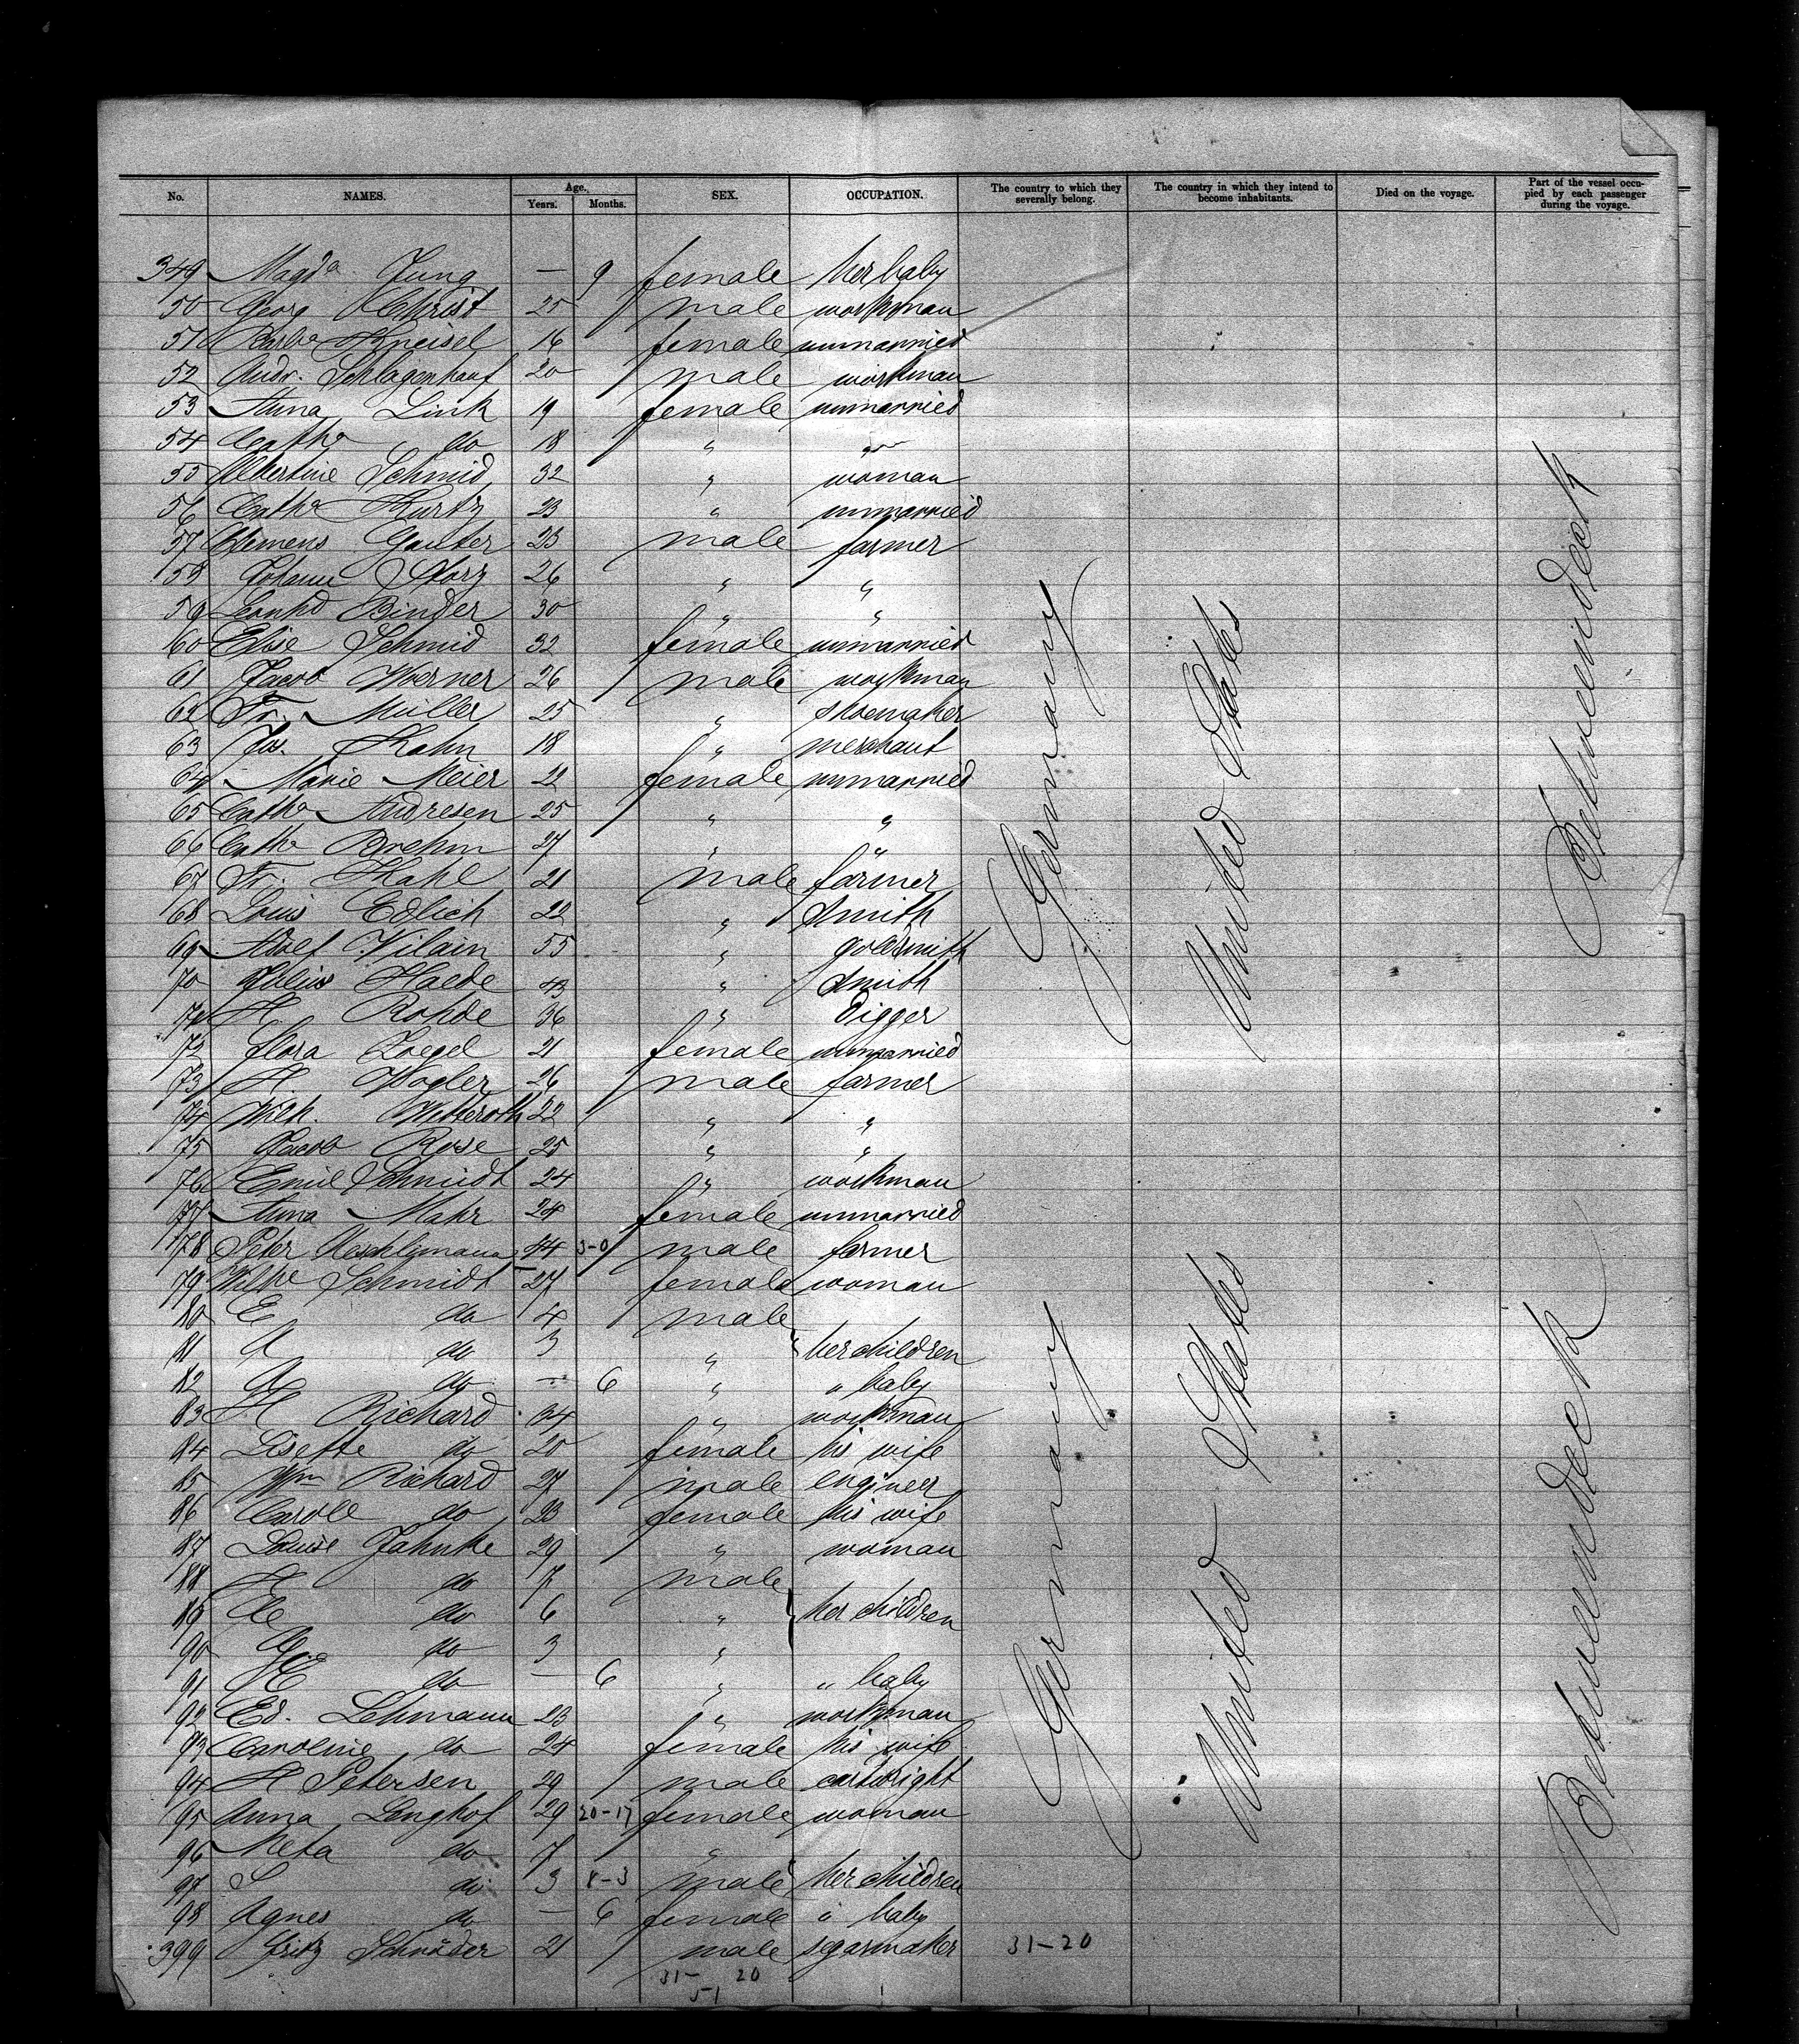 No. NAMES. Age. Years. Months. SEX. OCCUPATION. The country to which they severally belong. The country in which they intend to become inhabitants. Died on the voyage. Part of the vessel occupied by each passenger during the voyage.
349 Magda Jung — 9 female her baby
50 Georg Christ 25 male workman
51 Barba Kneisel 16 female unmarried
52 Andr. Schlagenhauf 20 male workman
53 Anna Link 19 female unmarried
54 Catha do 18 " "
55 Albertine Schmid 32 " woman
56 Catha Kurtz 23 " unmarried
57 Clemens Ganter 23 male farmer
58 Johann Storz 26 " "
59 Leonhd Binder 30 " "
60 Elise Schmid 32 female unmarried
61 Jacob Woerner 26 male workman
62 Fr. Müller 25 " shoemaker
63 Jos. Kahn 18 " merchant
64 Marie Meier 22 female unmarried
65 Catha Andresen 25 " "
66 Catha Brehm 27 " "
67 Fr. Kahl 21 male farmer
68 Louis Edlich 22 " smith
69 Adolf Vilain 55 " goldsmith
70 Julius Haede 43 " smith
71 H Rohde 36 " digger
72 Flora Loegel 21 female unmarried
73 H Wogler 26 male farmer
74 Wilh. Witteroth 22 " "
75 Jacob Rose 25 " "
76 Emil Schmidt 24 " workman
77 Anna Mahr 24 female unmarried
78 Peter Aeschlymann 44 3-0 male farmer
79 Wilhe Schmidt 27 female woman
80 E do 4 male
81 A do 3 " her children
82 A do — 6 " " baby
83 H Richard 34 " workman
84 Lisette do 20 female his wife
85 Wm Richard 27 male engineer
86 Caroll do 23 female his wife
87 Louise Jahnke 29 " woman
88 H do 7 male
89 Ae do 6 " her children
90 G. do 3 "
91 E do — 6 " " baby
92 Ed. Lehmann 23 " workman
93 Caroline do 24 female his wife
94 H Petersen 29 male cartwright
95 Anna Lenghof 29 20-17 female woman
96 Meta do 7 "
97 S do 3 8-3 male her children
98 Agnes do — 6 female " baby
399 Fritz Schröder 21 male segarmaker 31-20
31- 20
51
Germany
United States
Betweendeck
Germany
United States
Betweendeck